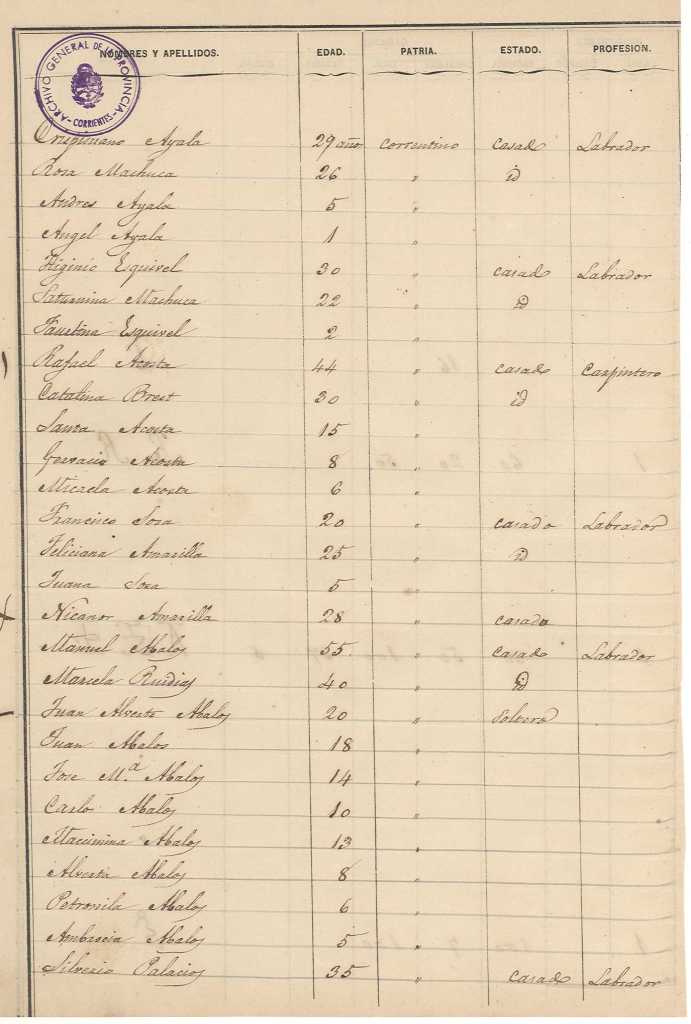 NOMBRES Y APELLIDOS. EDAD. PATRIA. ESTADO. PROFESION.
ARCHIVO GENERAL DE LA PROVINCIA
- CORRIENTES -
Crispiniano Ayala 29 años correntino casado Labrador
Rosa Machuca 26 " id
Andres Ayala 5 "
Angel Ayala 1 "
Higinio Esquivel 30 " casado Labrador
Saturnina Machuca 22 " id
Faustina Esquivel 2 "
Rafael Acosta 44 " casado Carpintero
Catalina Brest 30 " id
Acosta 15 "
Gervacio Acosta 8 "
Micaela Acosta 6 "
Francisco Sosa 20 " casado Labrador
Feliciana Amarilla 25 " id
Juana Sosa 5 "
Nicanor Amarilla 28 " casado
Manuel Abalos 55 " casado Labrador
Marcela Ruidias 40 " id
Juan Alverto Abalos 20 " soltero
Juan Abalos 18 "
Jose M.a Abalos 14 "
Carlo Abalos 10 "
Abalos 13 "
Alverta Abalos 8 "
Petronila Abalos 6 "
Ambrocia Abalos 5 "
Silverio Palacios 35 " casado Labrador